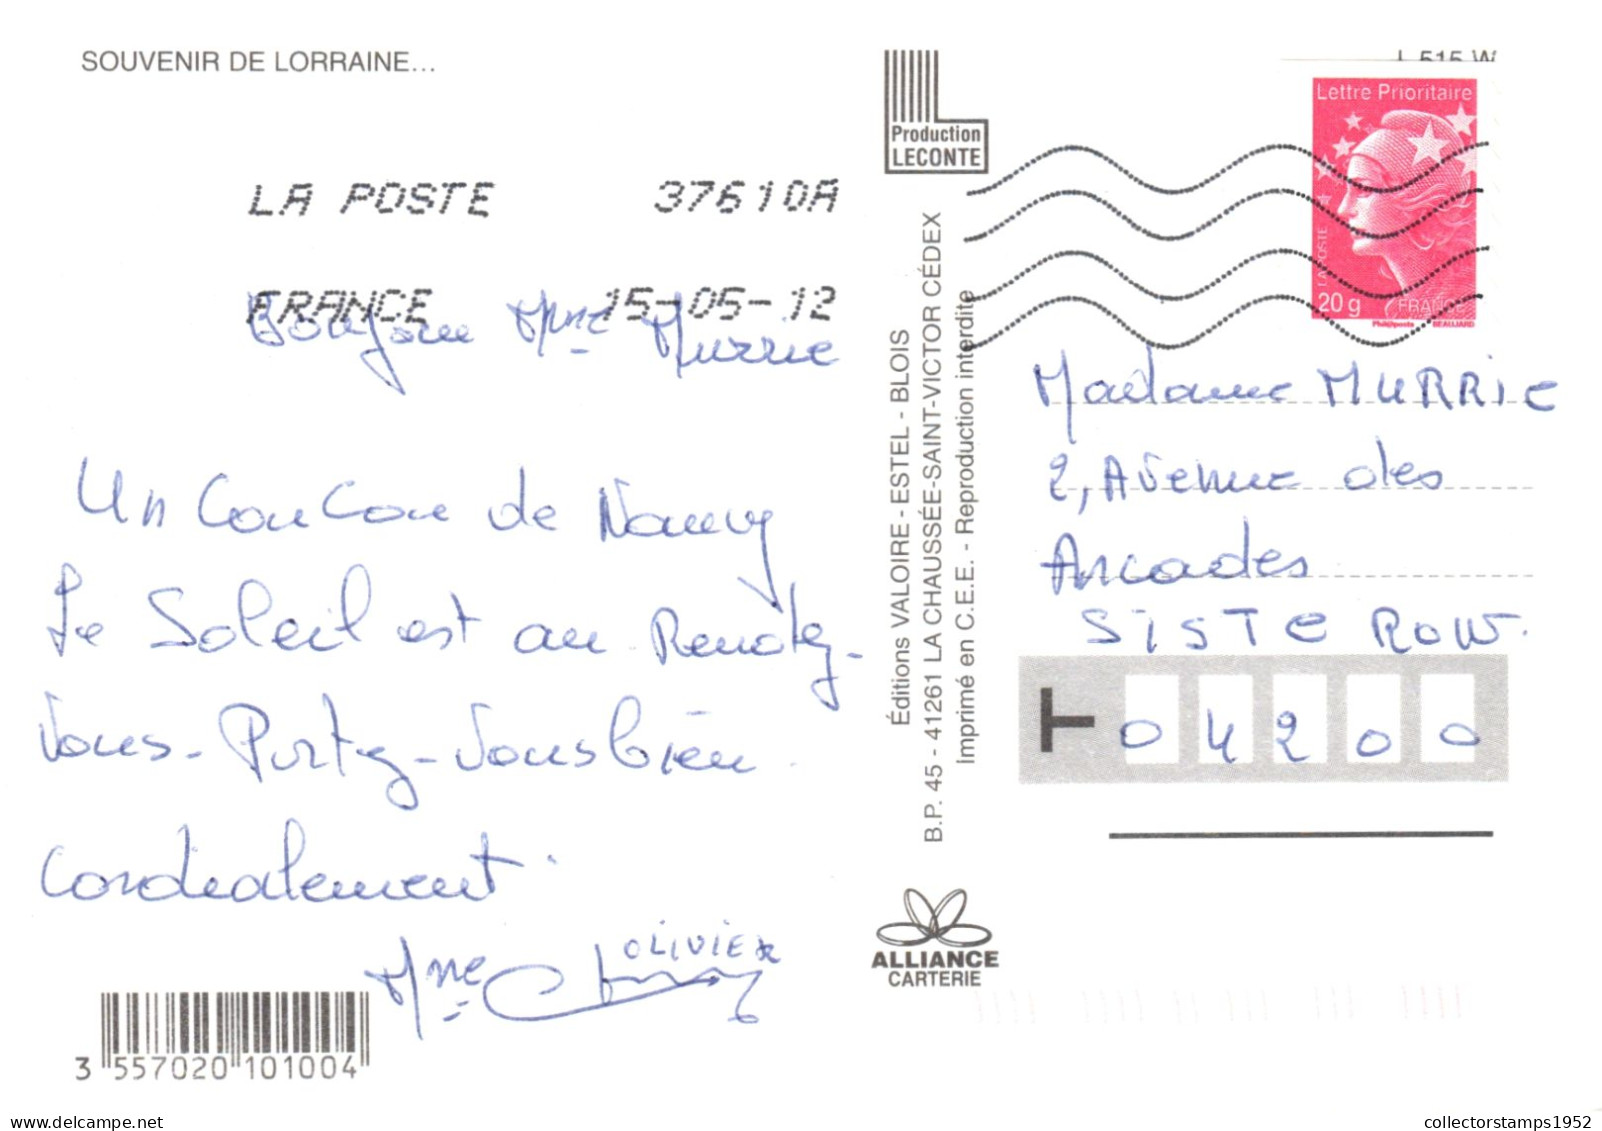 SOUVENIR DE LORRAINE...
LA POSTE 37610A
FRANCE 15-05-12
Bonjour Mme Murrie
Un CouCou de Nancy
Le Soleil est au Rendez-
Vous - Portez-Vous bien.
Cordialement.
Mme OLIVIER
3 557020 101004
Production
LECONTE
Éditions VALOIRE - ESTEL - BLOIS
B.P. 45 - 41261 LA CHAUSSÉE-SAINT-VICTOR CÉDEX
Imprimé en C.E.E. - Reproduction interdite
ALLIANCE
CARTERIE
L 515 W
Lettre Prioritaire
LA POSTE
20 g FRANCE
Phil@poste BEAUJARD
Madame MURRIE
2, Avenue des
Arcades
SISTEROW.
04200
collectorstamps1952